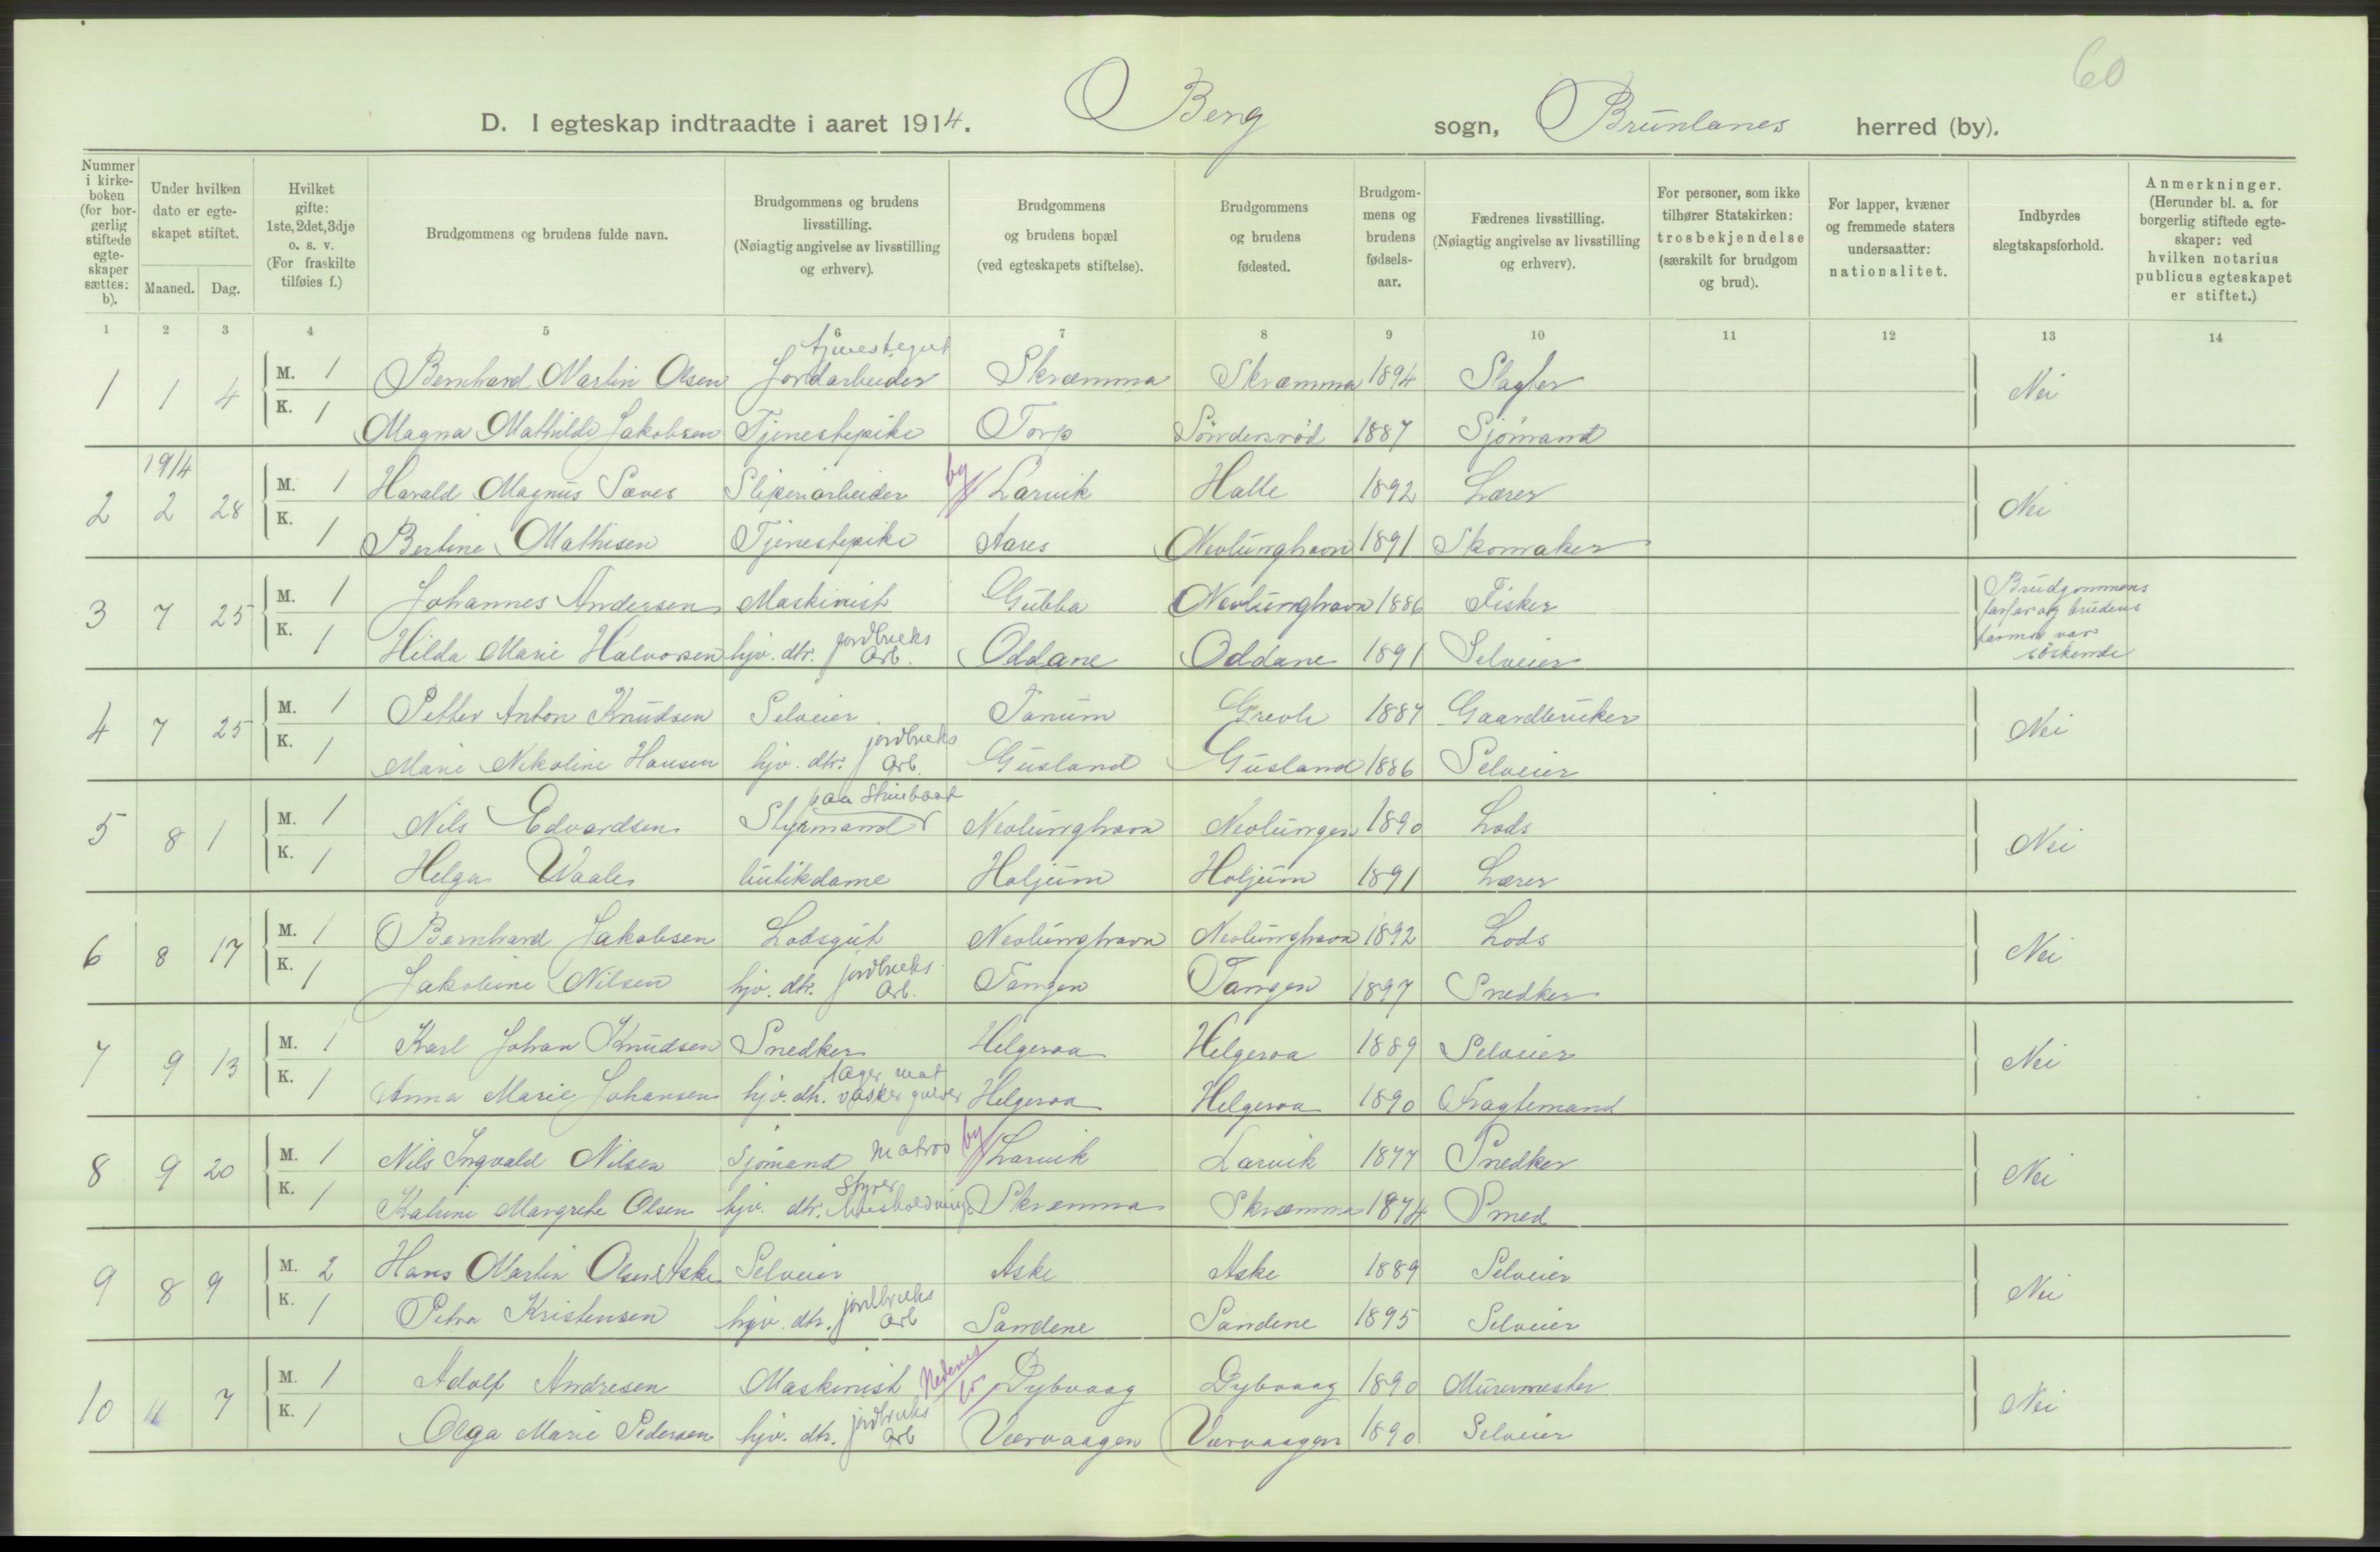 60
D. I egteskap indtraadte i aaret 1914. Berg sogn, Brunlanes herred (by).
Nummer i kirkeboken (for borgerlig stiftede egteskaper sættes: b).
Under hvilken dato er egteskapet stiftet.
Maaned. Dag.
Hvilket gifte: 1ste, 2det, 3dje o. s. v. (For fraskilte tilføies f.)
Brudgommens og brudens fulde navn.
Brudgommens og brudens livsstilling. (Nøiagtig angivelse av livsstilling og erhverv).
Brudgommens og brudens bopæl (ved egteskapets stiftelse).
Brudgommens og brudens fødested.
Brudgommens og brudens fødselsaar.
Fædrenes livsstilling. (Nøiagtig angivelse av livsstilling og erhverv).
For personer, som ikke tilhører Statskirken: trosbekjendelse (særskilt for brudgom og brud).
For lapper, kvæner og fremmede staters undersaatter: nationalitet.
Indbyrdes slegtskapsforhold.
Anmerkninger. (Herunder bl. a. for borgerlig stiftede egteskaper: ved hvilken notarius publicus egteskapet er stiftet.)
1 2 3 4 5 6 7 8 9 10 11 12 13 14
tjenestegut
1 1 4 M. 1 Bernhard Martin Olsen Jordarbeider Skræmma Skræmma 1894 Slagter Nei
K. 1 Magna Mathilde Jakobsen Tjenestepike Torp Söndersröd 1887 Sjömand
1914
2 2 28 M. 1 Harald Magnus Saves Sliperiarbeider by Larvik Halle 1892 Lærer Nei
K. 1 Bertine Mathisen Tjenestepike Aares Nevlunghavn 1891 Skomaker
3 7 25 M. 1 Johannes Andersen Maskinist Gubba Nevlunghavn 1886 Fisker Brudgommens farfar og brudens farmor var söskende
K. 1 Hilda Marie Halvorsen hjv. dtr. jordbruks arb. Oddane Oddane 1891 Selveier
4 7 25 M. 1 Petter Anton Knudsen Selveier Tanum Grevle 1887 Gaardbruker Nei
K. 1 Marie Nikoline Hansen hjv. dtr. jordbruks arb. Gusland Gusland 1886 Selveier
5 8 1 M. 1 Nils Edvardsen Styrmand paa Nevlunghavn Nevlungen 1890 Lods Nei
K. 1 Helga Waale butikdame Holjum Holjum 1891 Lærer
6 8 17 M. 1 Bernhard Jakobsen Lodsgut Nevlunghavn Nevlunghavn 1892 Lods Nei
K. 1 Jakobine Nilsen hjv. dtr. jordbruks arb. Tangen Tangen 1897 Snedker
7 9 13 M. 1 Karl Johan Knudsen Snedker Helgeroa Helgeroa 1889 Selveier Nei
K. 1 Anna Marie Johansen hjv. dtr. lager mat vasker gulver Helgeroa Helgeroa 1890 Fragtemand
8 9 20 M. 1 Nils Ingvald Nilsen Sjömand Matros by Larvik Larvik 1877 Snedker Nei
K. 1 Katrine Margrethe Olsen hjv. dtr. Styrer husholdning Skræmma Skræmma 1874 Smed
9 8 9 M. 2 Hans Martin Olsen Aske Selveier Aske Aske 1889 Selveier Nei
K. 1 Petra Kristensen hjv. dtr. jordbruks arb Sandene Sandene 1895 Selveier
10 11 7 M. 1 Adolf Andresen Maskinist Nedenes Dybvaag Dybvaag 1890 Murermester Nei
K. 1 Olga Marie Pedersen hjv. dtr. jordbruks arb Værvaagen Værvaagen 1890 Selveier